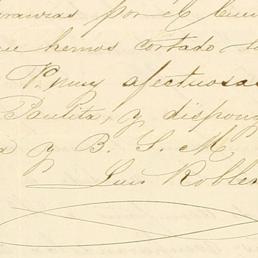 gracias por el buen
que hemos cortado su
Vo. muy afectuosas
Paulita, y dispong
a y B. S. M.
Luis Robles